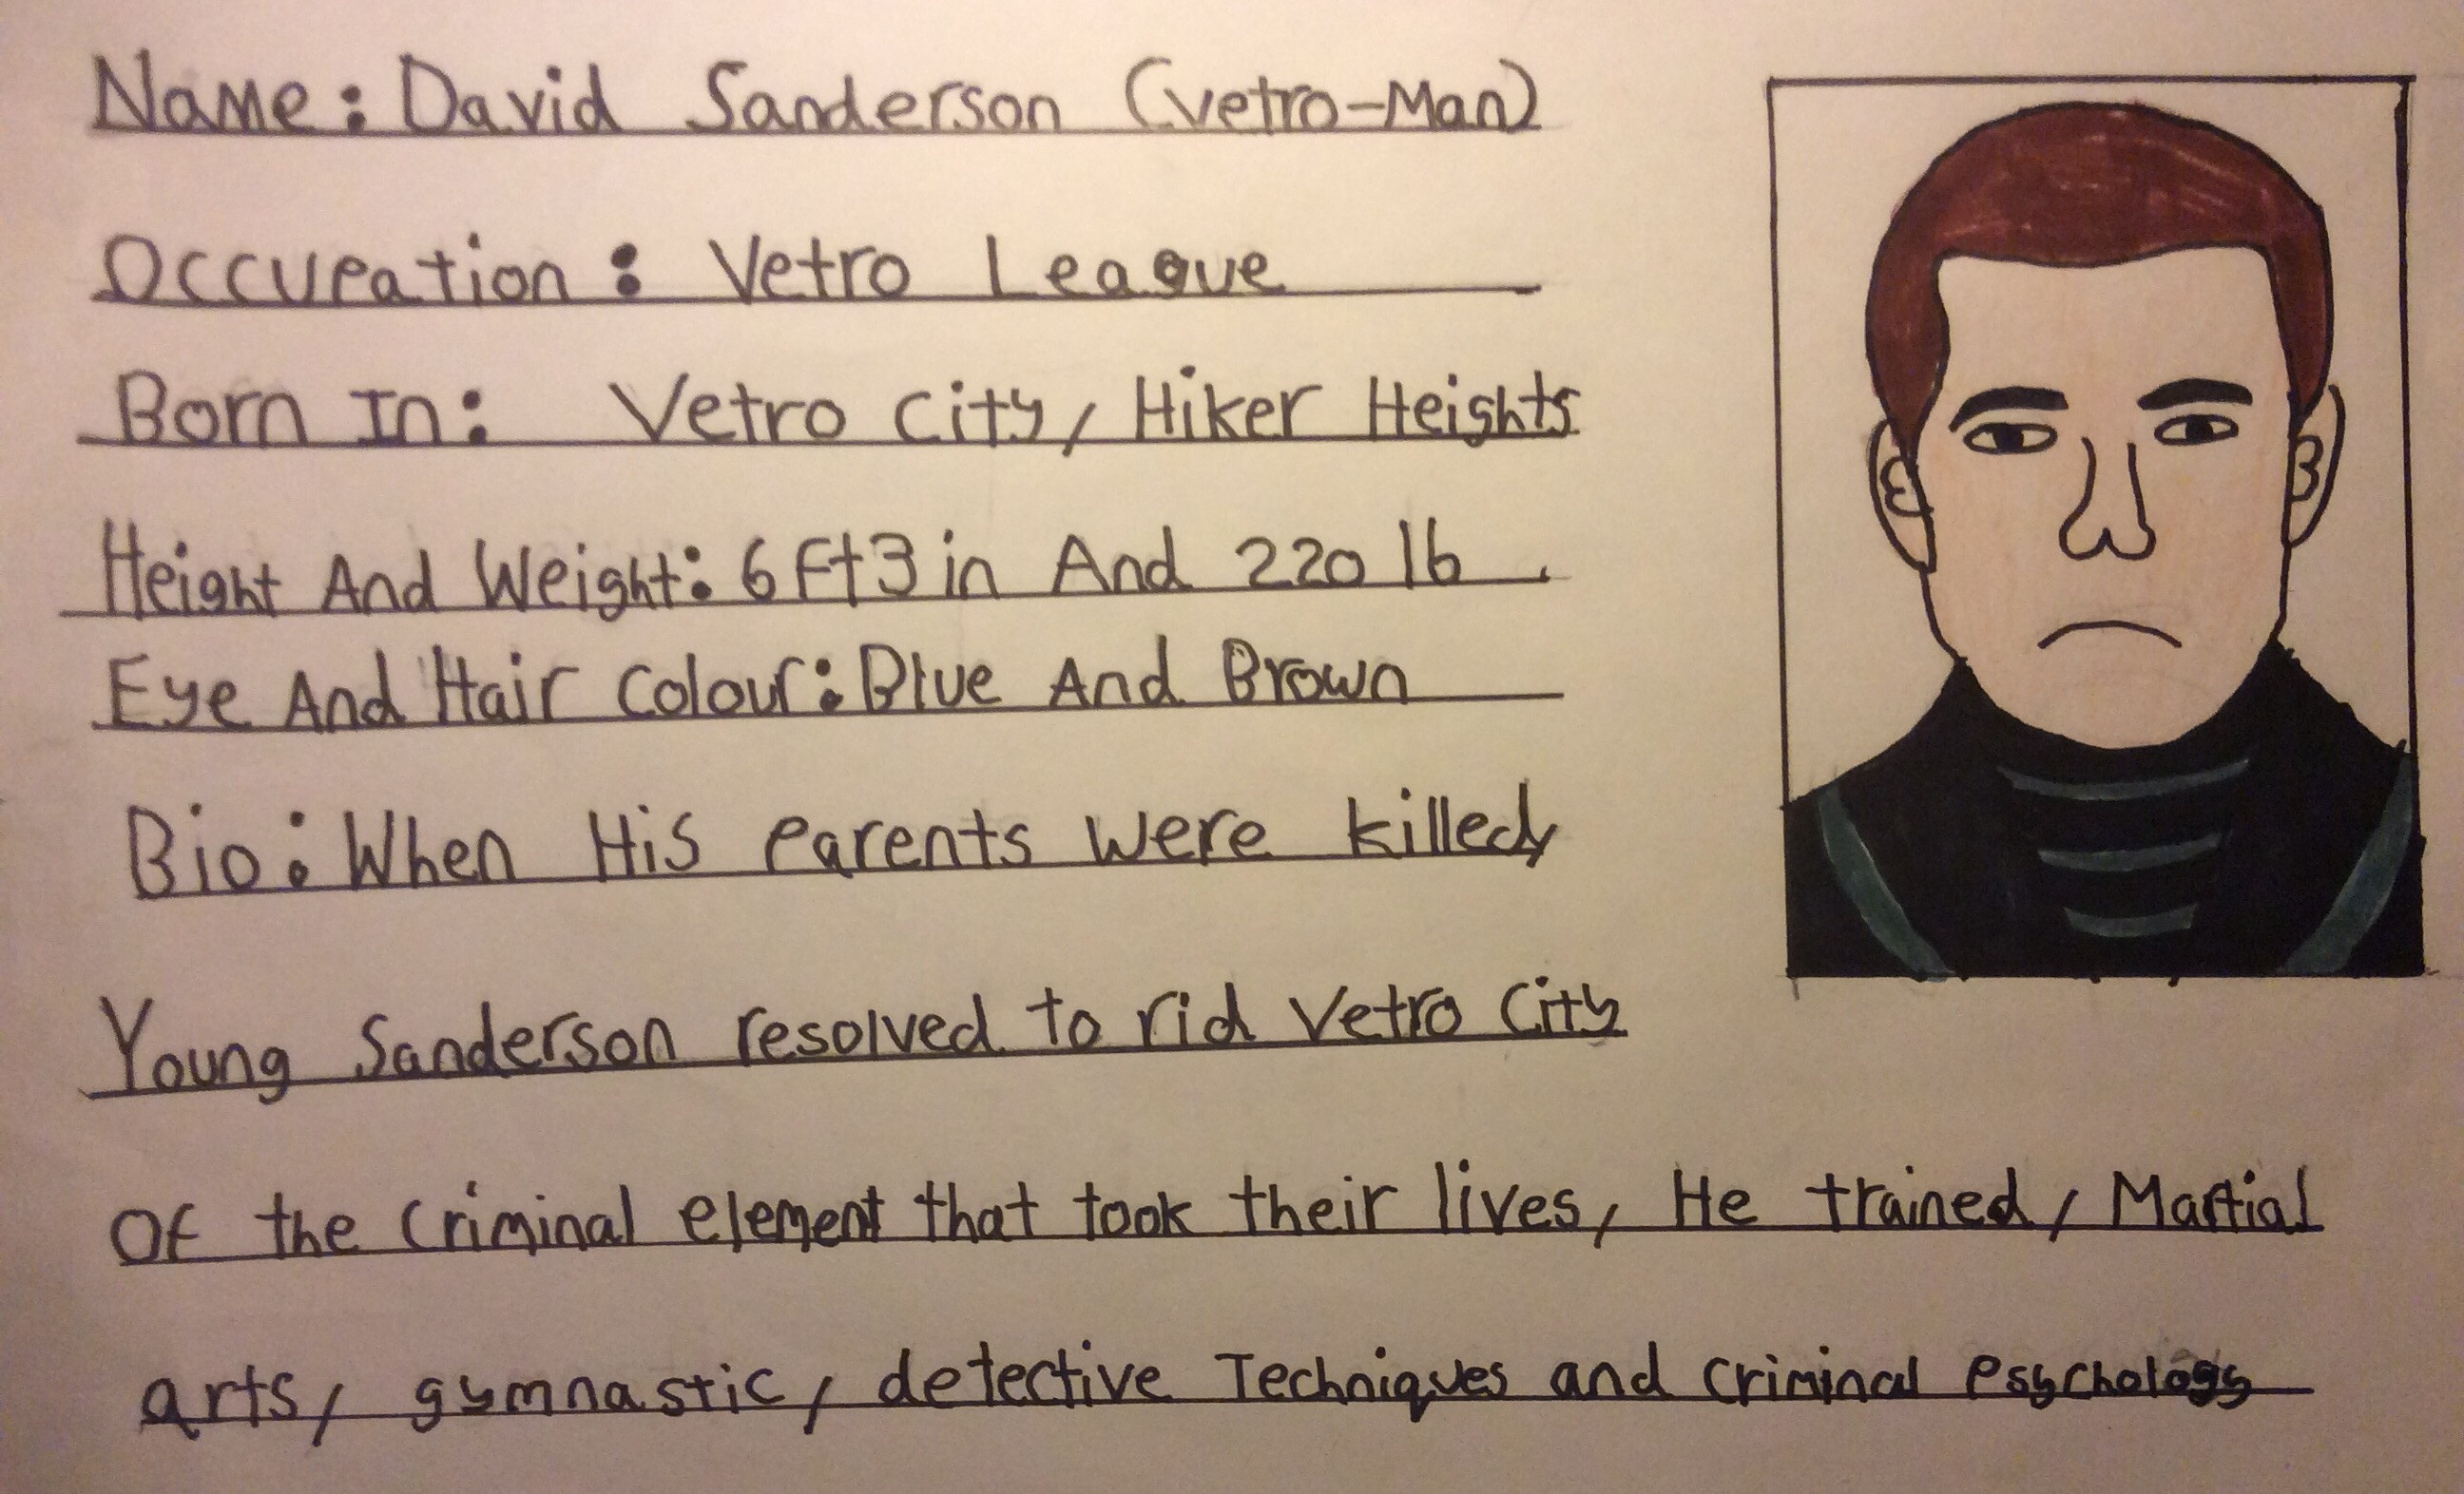 Name: David Sanderson (Vetro-Man)
Occupation: Vetro League
Born In: Vetro City, Hiker Heights
Height And Weight: 6 Ft 3 in And 220 lb.
Eye And Hair Colour: Blue And Brown
Bio: When His Parents Were killed,
Young Sanderson resolved to rid Vetro City
Of the Criminal element that took their lives, He trained, Martial
arts, gymnastic, detective Techniques and Criminal Psychology